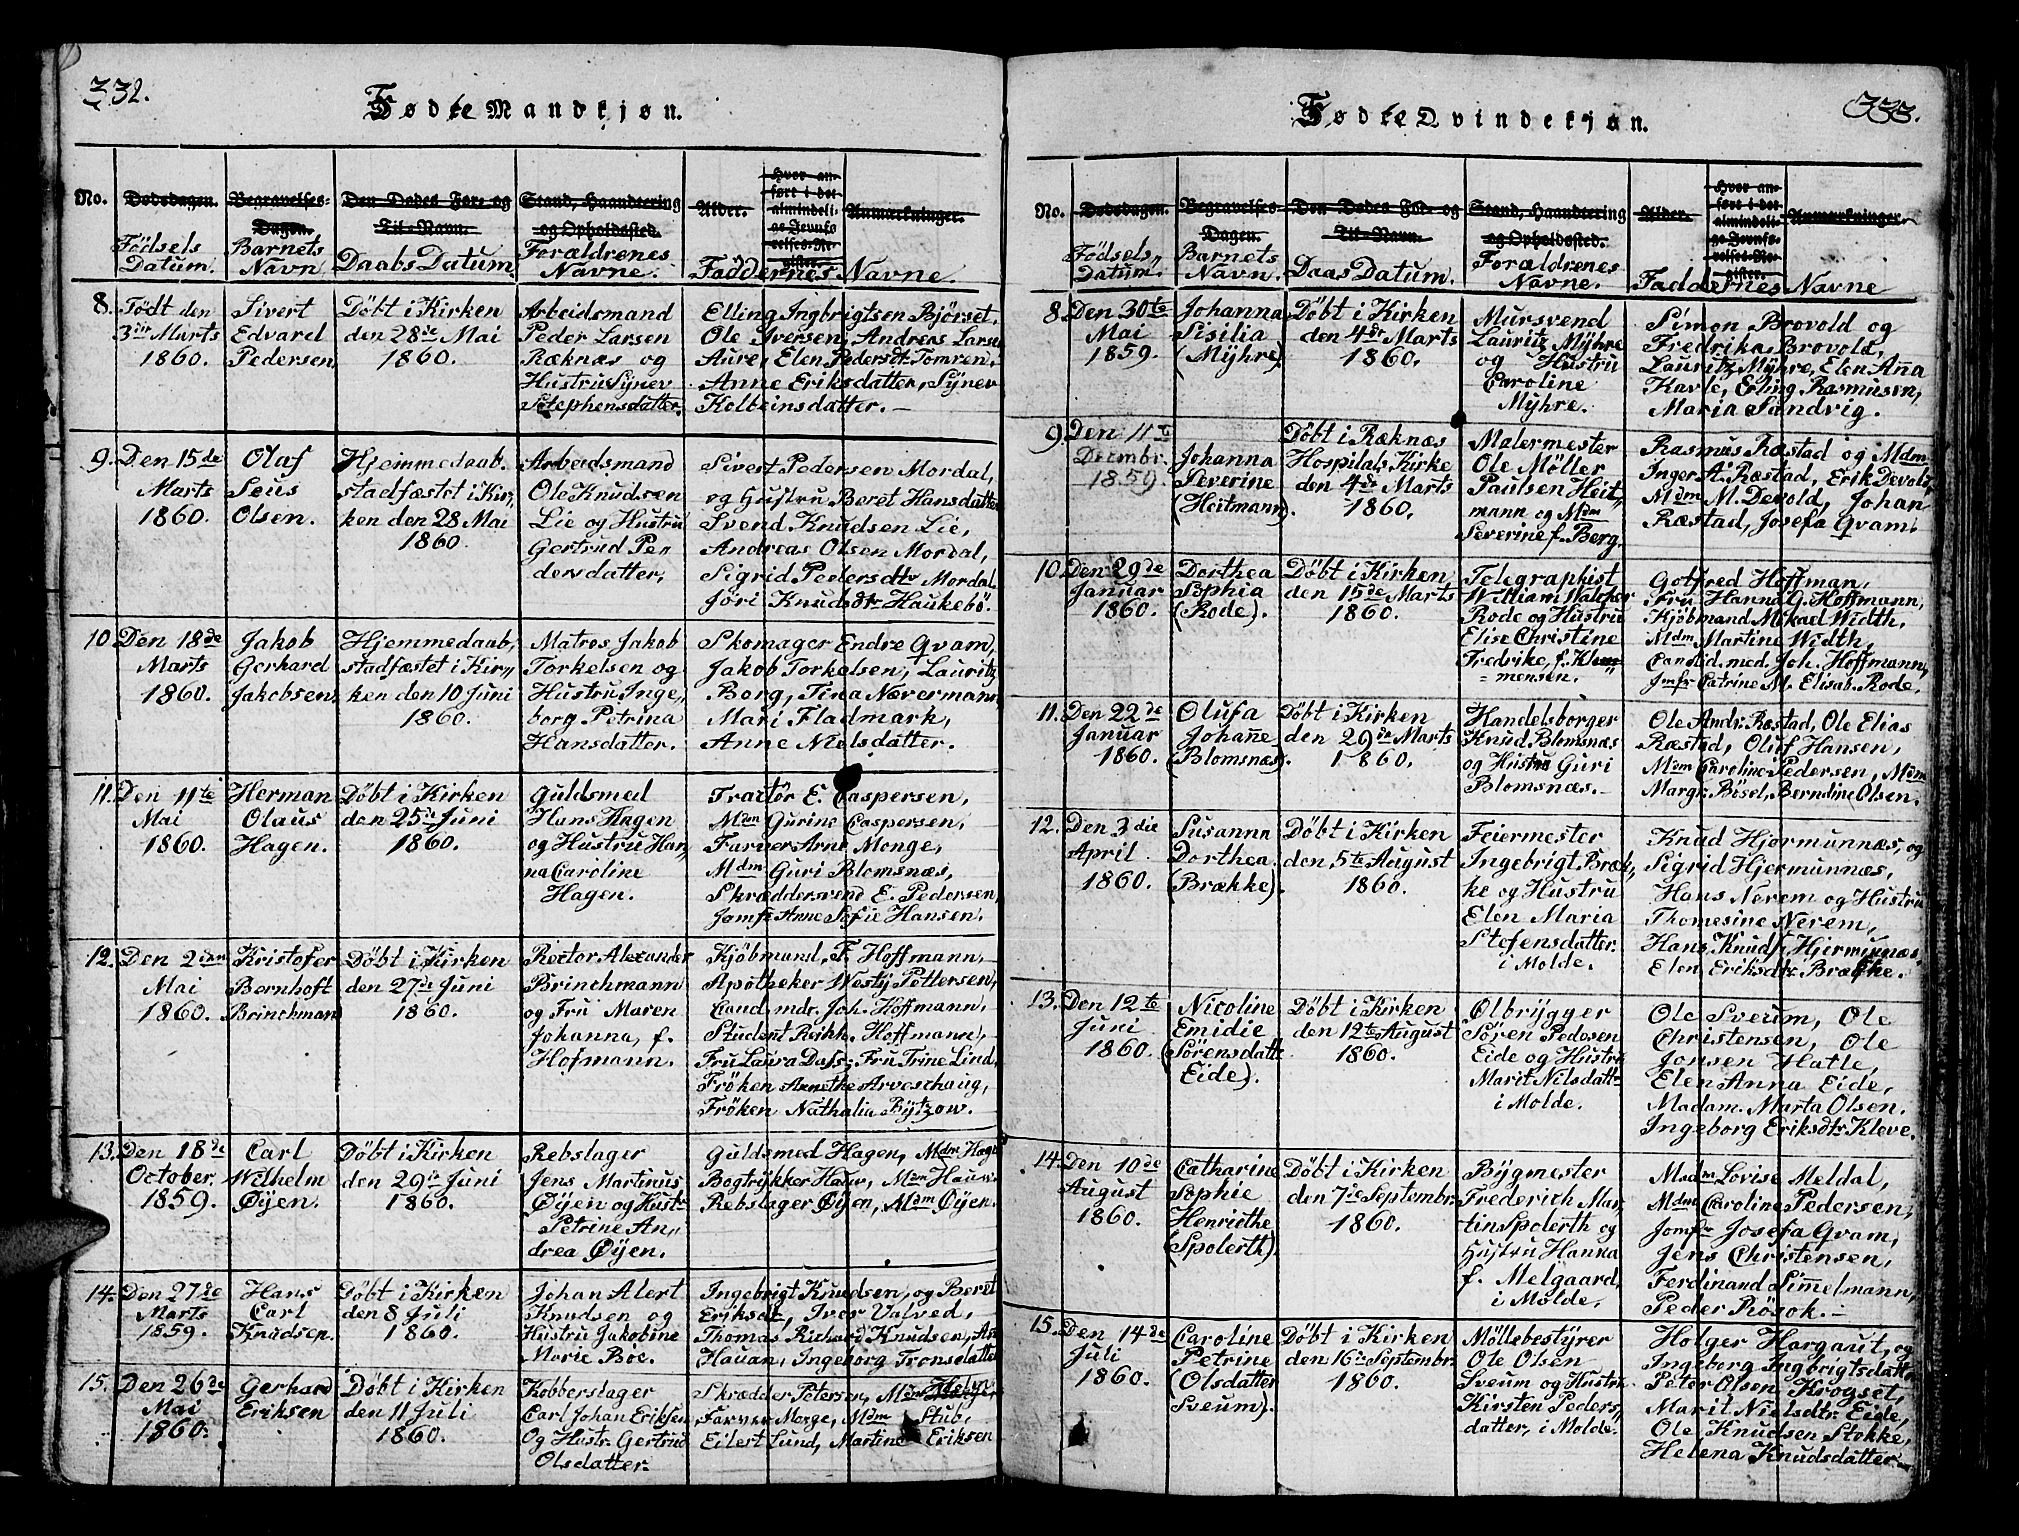 332.
Fødte Mandkjøn.
No.
Dødsdagen.
Fødsels
Datum.
Begravelses-
Dagen.
Barnets
Navn
Den Dødes For- og
Til-Navn.
Daabs Datum.
Stand, Haandtering
og Opholdssted.
Forældrenes
Navne.
Alder.
Hvor an-
ført i det
almindeli-
ge Jevnfø-
relses-Re-
gister.
Anmærkninger.
Faddernes Navne.
8. Født den
3die Marts
1860.
Sivert
Edvard
Pedersen.
Döbt i Kirken
den 28de Mai
1860.
Arbeidsmand
Peder Larsen
Ræknæs og
Hustru Synev
Stephensdatter.
Elling Ingbrigtsen Bjørset,
Ole Iversen, Andreas Larsen
Aure, Elen Pedersdt Tomren,
Anne Eriksdatter, Synev
Kolbeinsdatter. –
9. Den 15de
Marts
1860.
Olaf
Seus
Olsen.
Hjemmedaab.
stadfæstet i Kir„
ken den 28 Mai
1860.
Arbeidsmand
Ole Knudsen
Lie og Hustru
Gertrud Pe
dersdatter,
Sivert Pedersen Mordal,
og Hustru Beret Hansdatter
Svend Knudsen Lie,
Andreas Olsen Mordal,
Sigrid Pedersdtr Mordal
Jöri Knudsdtr Haukebö.
10. Den 18de
Marts
1860.
Jakob
Gerhard
Jakobsen.
Hjemmedaab,
stadfæstet i Kir„
ken den 10 Juni
1860.
Matros Jakob
Torkelsen og
Hustru Inge„
borg Petrina
Hansdatter.
Skomager Endre Qvam,
Jakob Torkelsen, Lauritz
Borg, Tina Nævermann,
Mari Fladmark,
Anne Nielsdatter.
11. Den 11te
Mai
1860.
Herman
Olaus
Hagen.
Döbt i Kirken
den 25de Juni
1860.
Guldsmed
Hans Hagen
og Hustru Han„
na Caroline
Hagen.
Tractör E. Caspersen,
Mdm Gurine Caspersen,
Farver Arne Monge,
Mdm Guri Blomsnæs,
Skræddersvend E. Pedersen,
Jomfr Anne Sofie Hansen.
12. Den 2den
Mai
1860.
Kristofer
Bernhoft
Brinchman
Döbt i Kirken
den 27de Juni
1860.
Rector Alexander
Brinchmann
og Fru Maren
Johanna, f.
Hofmann.
Kjöbmand, F. Hoffmann,
Apotheker Westy Pettersen,
Cand mdr. Joh. Hoffmann,
Student Reikh. Hoffmann,
Fru Laura Dass, Fru Trine Lind,
Fröken Annethe Arveschoug,
Fröken Nathalia Bytzow.
13. Den 18de
October.
1859.
Carl
Wilhelm
Øyen.
Döbt i Kirken
den 29de Juni
1860.
Rebslager
Jens Martinus
Øyen og Hustr
Petrine An„
drea Øyen.
Guldsmed Hagen, Mdm Hage
Bogtrykker Hauw, Mdm Hauw.
Rebslager Øyen, Mdm Øyen.
14. Den 27de
Marts
1859.
Hans
Carl
Knudsen.
Döbt i Kirken
den 8 Juli
1860.
Johan Alert
Knudsen og
Hustru Jakobine
Marie Böe.
Ingebrigt Knudsen, og Beret
Eriksdt, Ivor Valved,
Thomas Richard Knudsen, An
Hauan, Ingeborg Tronsdatter
15. Den 26de
Mai
1860.
Gerhard
Eriksen
Döbt i Kirken
den 11 Juli
1860.
Kobberslager
Carl Johan Eriksen
Og Hustr. Gertrud
Olsdatter.
Skrædder Petersen, Mdm
Farver Monge, Mdm Stub,
Eilert Lund, Martine Eriksen
333.
Fødte Qvindekjøn.
No.
Dødsdagen.
Fødsels„
Datum.
Begravelses-
Dagen.
Barnets
Navn.
Den Dødes For- og
Til-Navn.
Daas Datum.
Stand, Haandtering
og Opholdssted.
Forældrenes
Navne.
Alder.
Hvor an-
ført i det
almindeli-
ge Jevnfø-
relses-Re-
gister.
Anmærkninger.
Faddernes Navne
8. Den 30te
Mai
1859.
Johanna
Sisilia
(Myhre).
Döbt i Kirken
den 4de Marts
1860.
Mursvend
Lauritz Myhre
og Hustru
Caroline
Myhre.
Simon Brovold og
Fredrika Brovold,
Lauritz Myhre, Elen Aña
Kavle, Erling Rasmusen,
Maria Sandvig.
9. Den 11te
Decmbr.
1859.
Johanna
Severine
(Heitmann).
Döbt i Ræknæs
Hospitals Kirke
den 4de Marts
1860.
Malermester
Ole Möller
Paulsen Heit„
mann og Mdm
Severine f. Berg.
Rasmus Ræstad og Mdm
Inger A. Ræstad, Erik Devold,
Mdm M. Devold, Johan
Ræstad, Josefa Qvam.
10. Den 29de
Januar
1860.
Dorthea
Sophia
(Rode).
Döbt i Kirken,
den 15de Marts
1860.
Telegraphist
William Walcher
Rode og Hustru
Elise Christine
Fredrike, f. Klem„
mensen.
Gotfred Hoffman,
Fru Hanna G. Hoffmann,
Kjöbmand Mikael Width,
Mdm Martine Width,
Candid. med. Joh. Hoffmann,
Jmfr Catrine M. Elisab. Rode.
11. Den 22de
Januar
1860.
Olufa
Johañe
(Blomsnæs).
Döbt i Kirken
den 29de Marts
1860.
Handelsborger
Knud Blomsnæs
og Hustru Guri
Blomsnæs.
Ole Andr. Ræstad, Ole Elias
Ræstad, Oluf Hansen,
Mdm Caroline Pedersen, Mdm
Margr. Bösel, Berndine Olsen.
12. Den 3die
April
1860.
Susanna
Dorthea.
(Brække).
Döbt i Kirken
den 5te August
1860.
Feiermester
Ingebrigt Bræk„
ke og Hustru
Elen Maria
Stefensdatter.
i Molde.
Knud Hjermunnæs, og
Sigrid Hjermunnæs,
Hans Nerem og Hustru
Thomesine Nerem,
Hans Knuds. Hjermunæs.
Elen Eriksdtr Brække.
13. Den 12te
Juni
1860.
Nicoline
Emidie
(Sörensdatt.
Eide).
Döbt i Kirken
den 12te August
1860.
Ölbrygger
Sören Pedesen
Eide og Hustru
Marit Nilsdatt-
i Molde.
Ole Sveum, Ole
Christensen, Ole
Jonsen Hatle,
Elen Anna Eide,
Madam. Marta Olsen.
Ingeborg Eriksdtr Kleve.
14. Den 10de
August
1860.
Catharine
Sophie
Henriethe
(Spolerth).
Döbt i Kirken
den 7de Septembr.
1860.
Bygmester
Frederich Mar„
tin Spolerth og
Hustru Hanna
f. Melgaard,
i Molde.
Madm Lovise Meldal,
Mdm Caroline Pedersen,
Jomfr Josefa Qvam,
Jens Christensen,
Ferdinand Simmelmann,
Peder Rösok. –
15. Den 14de
Juli
1860.
Caroline
Petrine
(Olsdatter
Sveum).
Döbt i Kirken
den 16de Septembr.
1860.
Möllebestyrer
Ole Olsen
Sveum og Hustru
Kirsten Peders„
datter, i Molde.
Holger Hargaut, og
Ingeborg Ingbrigtsdatt
Peter Olsen Krogset,
Marit Nielsdtr Eide,
Ole Knudsen Stokke,
Helena Knudsdatter –